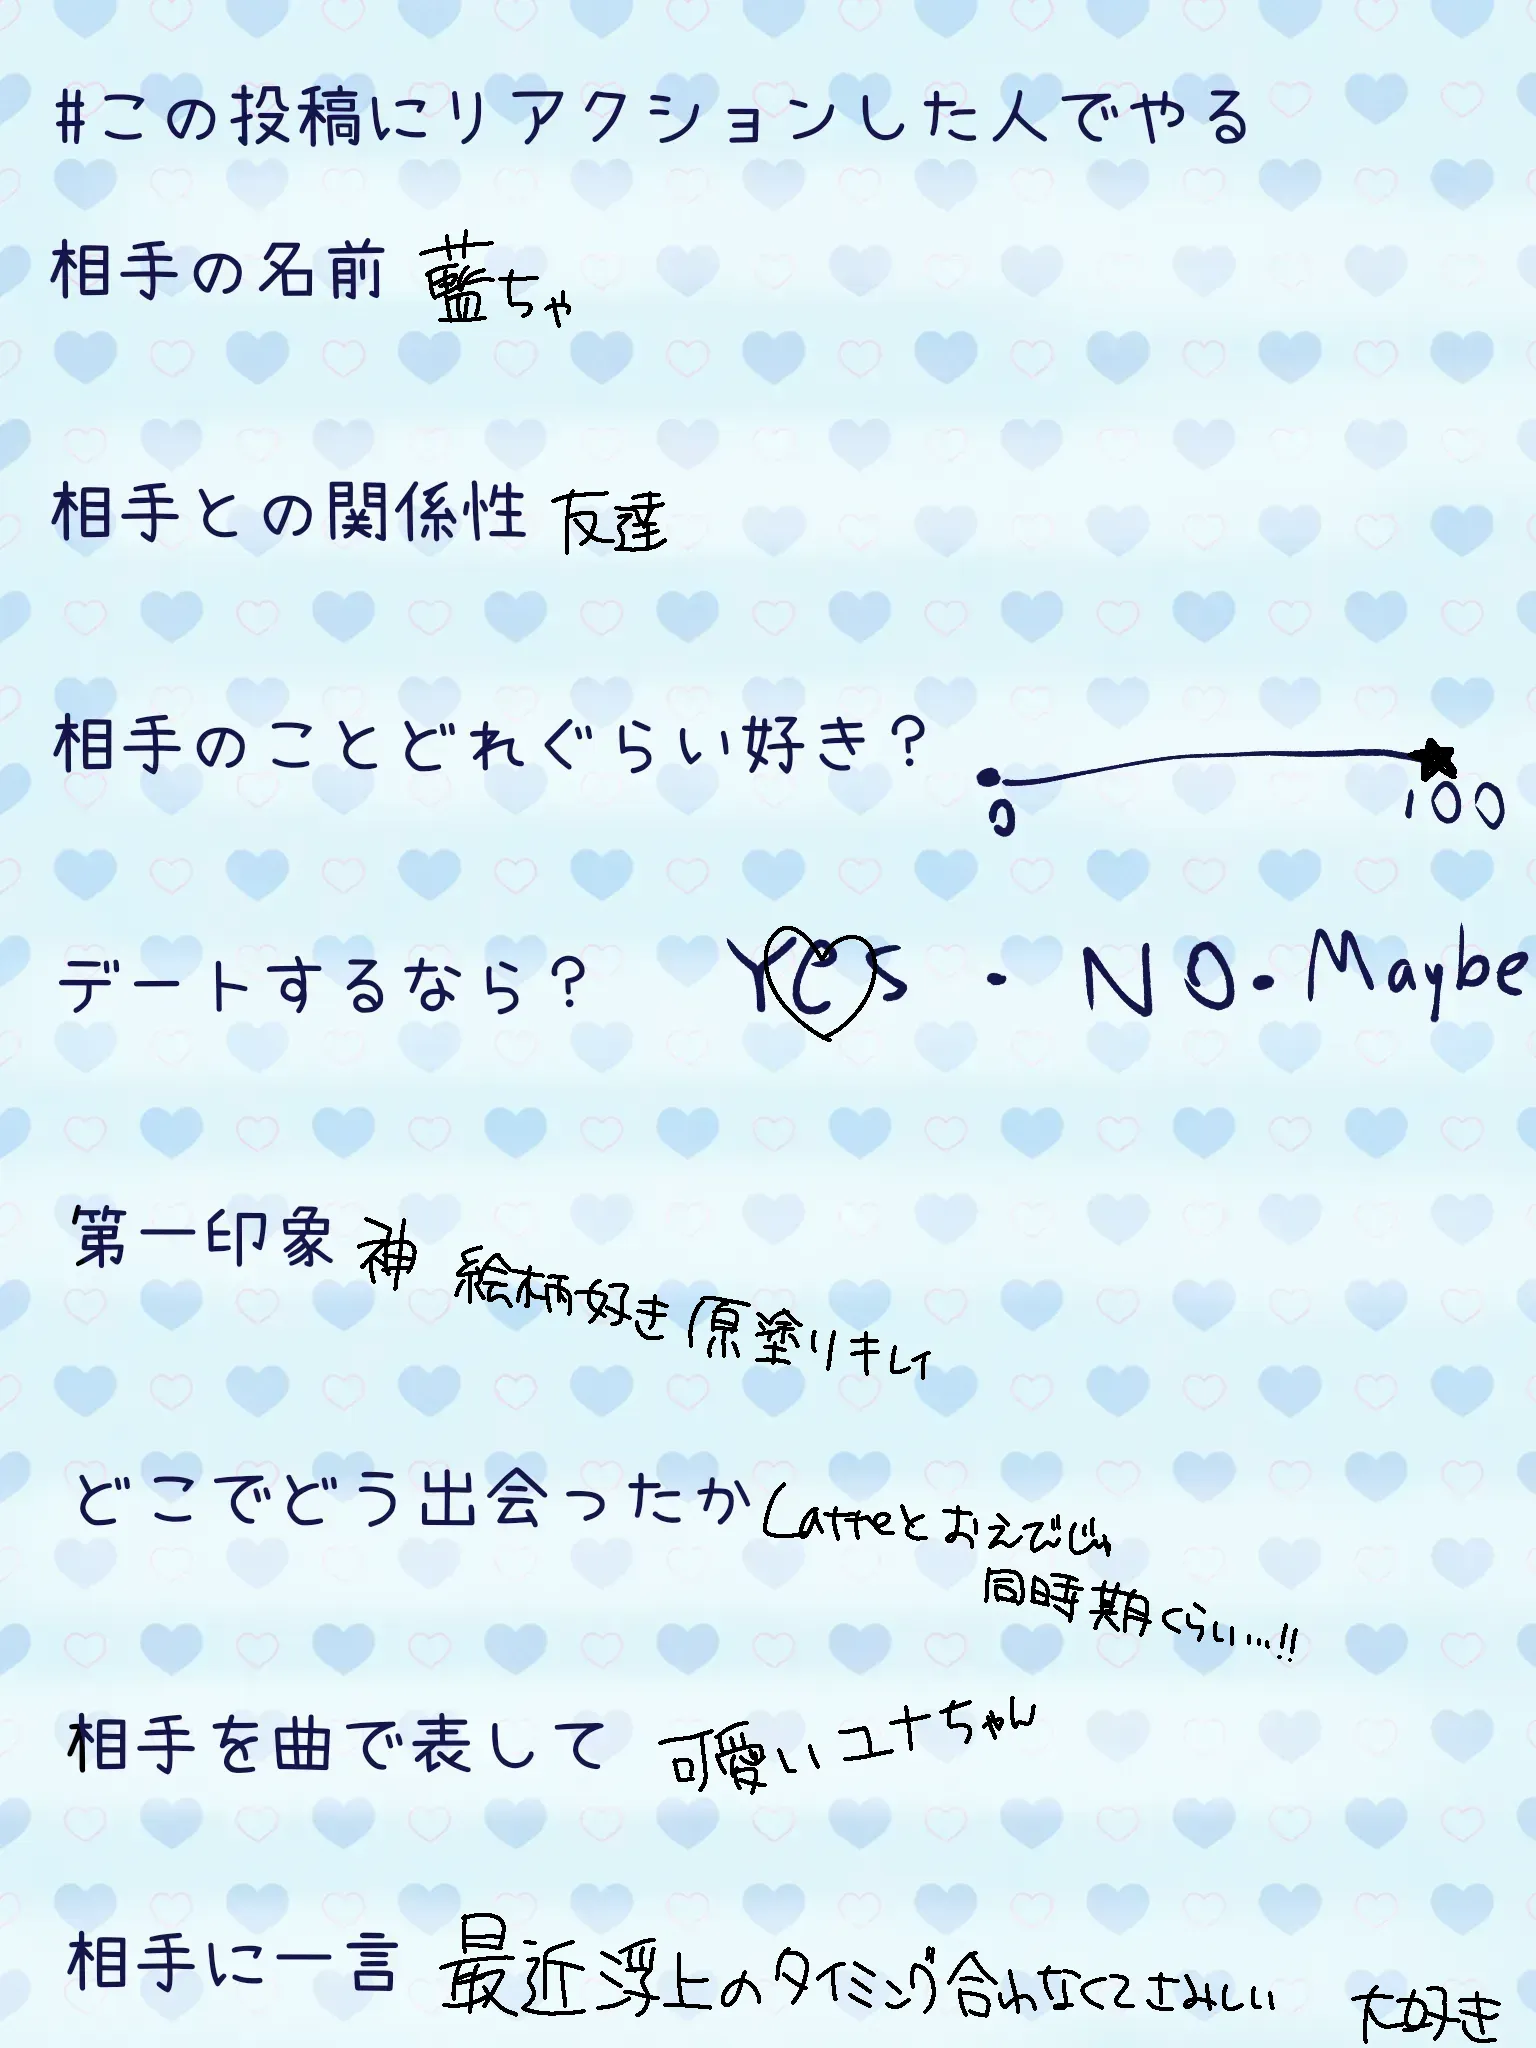 #この投稿にリアクションした人でやる
相手の名前 藍ちゃ
相手との関係性 友達
相手のことどれぐらい好き?
0 100
デートするなら? Yes ・ NO・Maybe
第一印象 神 絵柄好き 原塗りキレイ
どこでどう出会ったか Latteとおえびじゃ
同時期くらい…!!
相手を曲で表して 可愛いユナちゃん
相手に一言 最近浮上のタイミング合わなくてさみしい 大好き